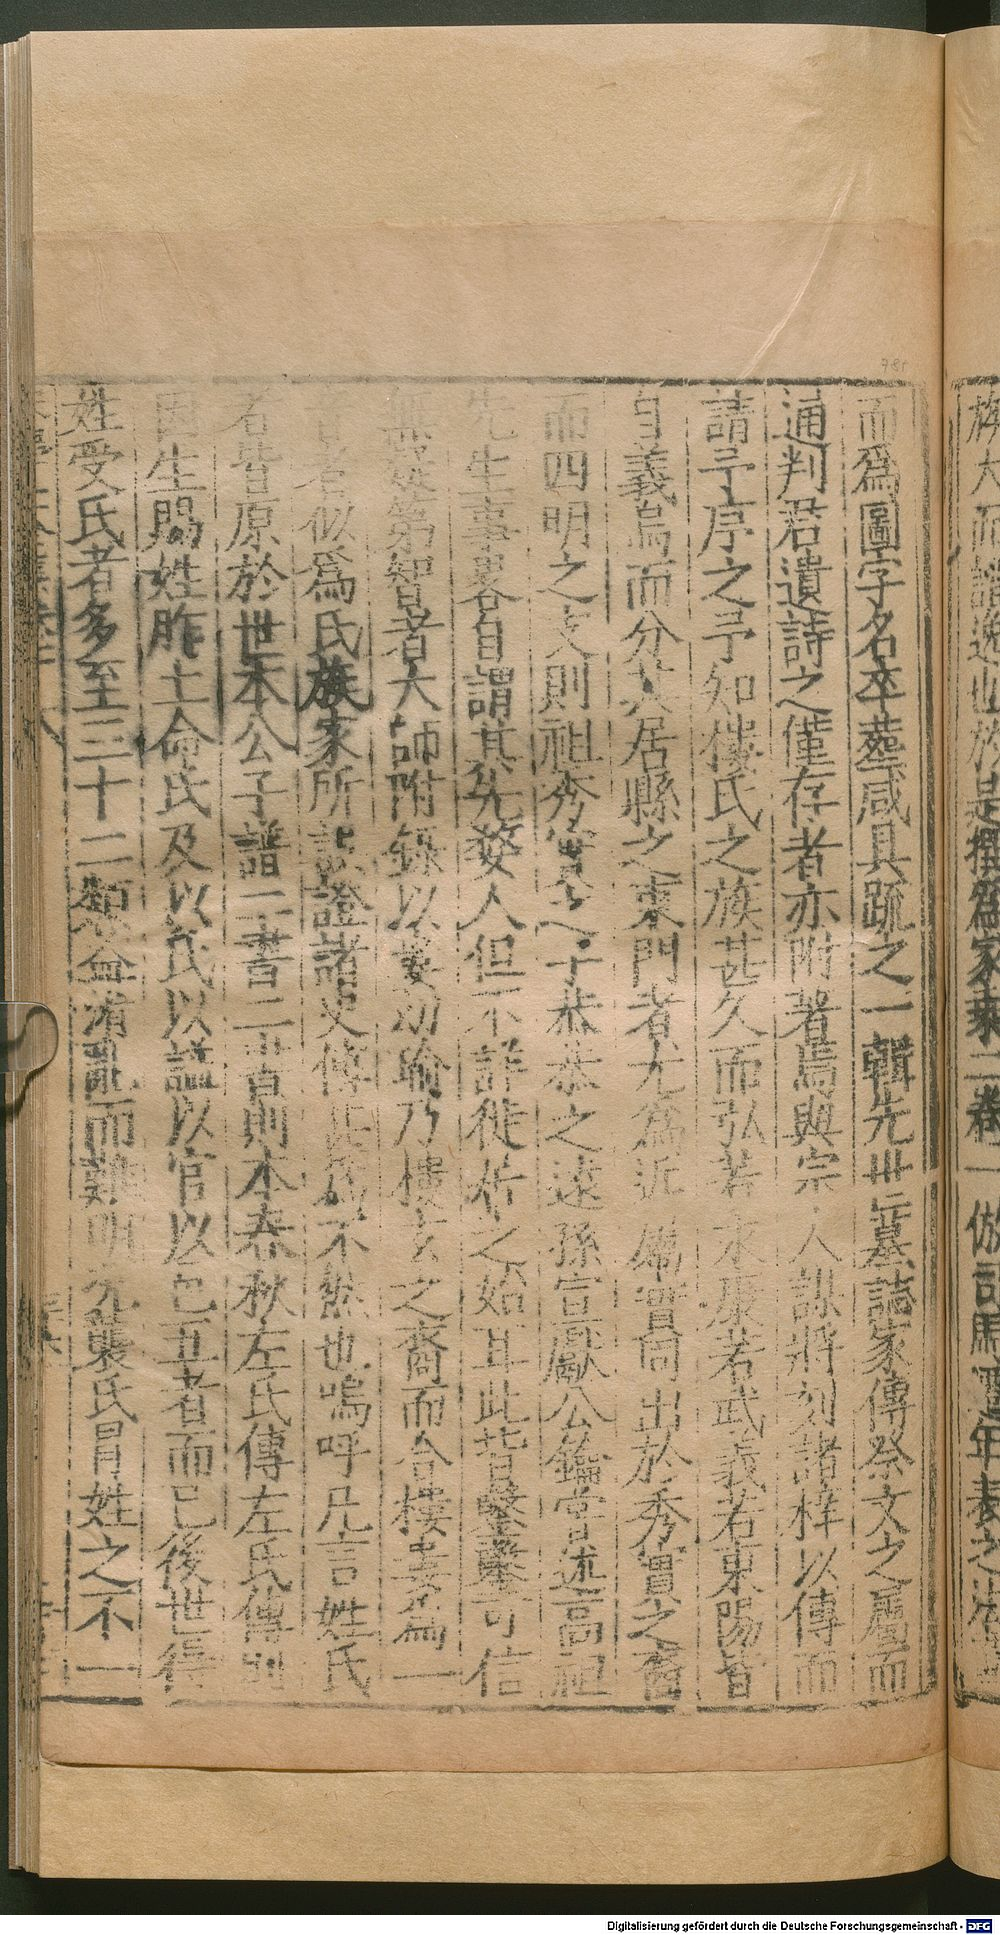 族大而譜逸也於是撰爲家乘二卷一倣司馬遷年表之法
而爲圖字名卒葬咸具疏之一輯先世墓誌家傳祭文之屬而
通判君遺詩之僅存者亦附著焉與宗人謀將刻諸梓以傳而
請予序之予知僂氏之族甚久而弘若永康若武義若東陽皆
自義烏而分其居縣之東門者尤爲近 嘗同出於秀實之裔
而四明之支則祖秀實之子恭恭之遠孫宣獻公鑰嘗述高祖
先生事畧自謂其先婺人但不詳徙居之始耳此皆鑿鑿可信
無疑第智者大師附錄以婁幼瑜乃樓玄之裔而合樓婁爲一
者似爲氏族家所誤證諸史傳 不然也嗚呼凡言姓氏
者皆原於世本公子譜二書二書則本春秋左氏傳左氏傳則
因生賜姓胙土命氏及以氏以諡以官以邑五者而已後世得
姓受氏者多至三十二類益淆亂而難明 襲氏冒姓之不一
Digitalisierung gefördert durch die Deutsche Forschungsgemeinschaft - DFG